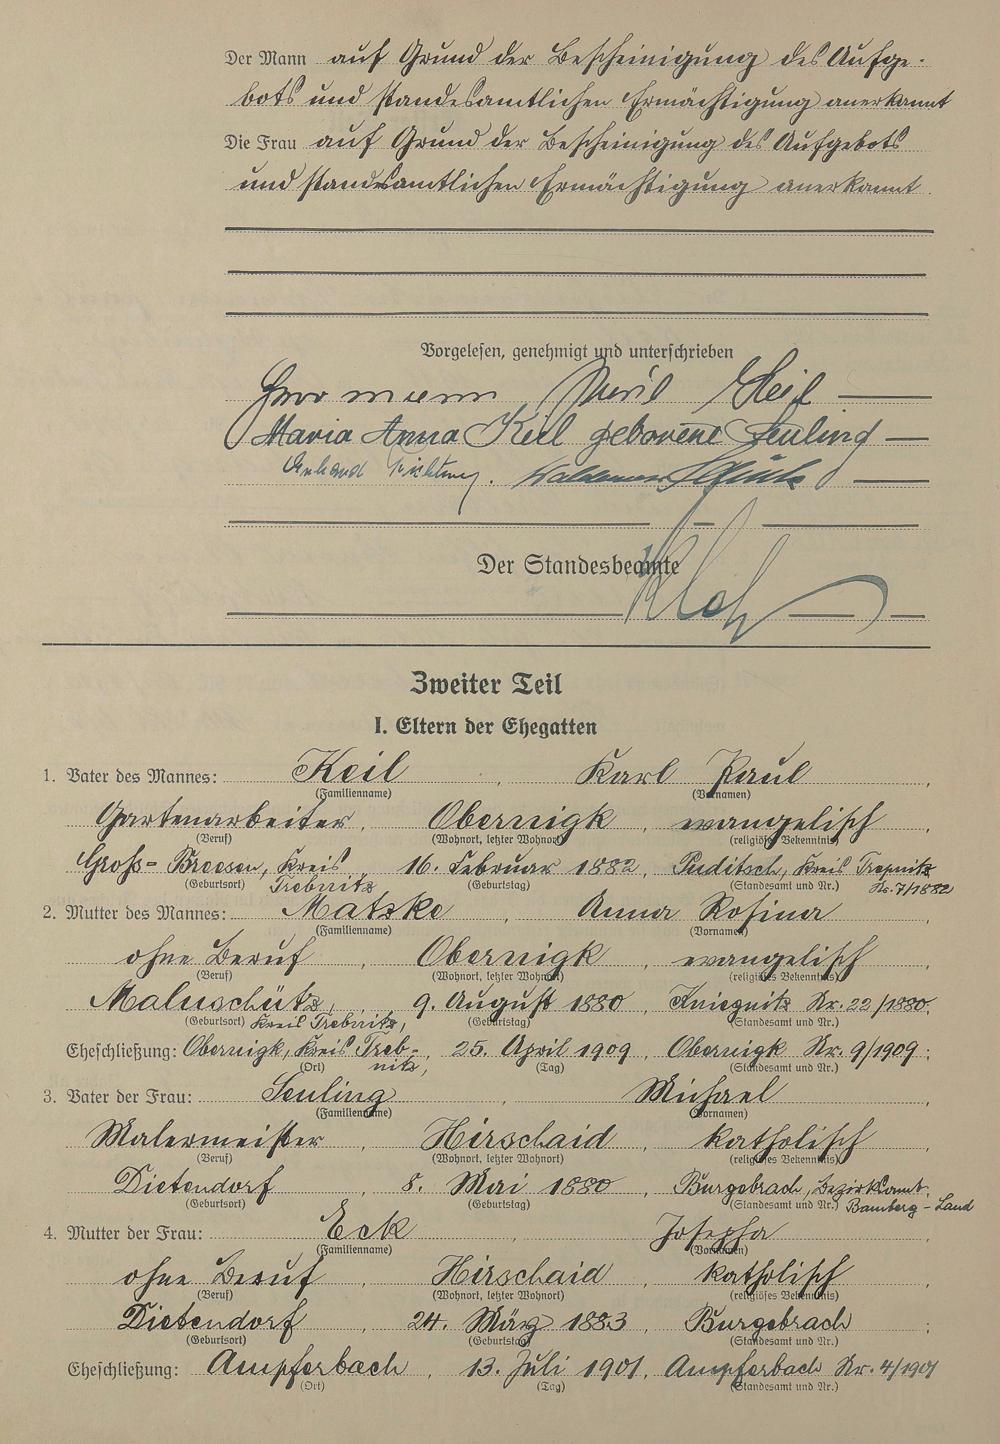 Der Mann auf Grund der Bescheinigung des Aufge-
bots und standesamtlichen Ermächtigung anerkannt
Die Frau auf Grund der Bescheinigung des Aufgebots
und standesamtlichen Ermächtigung anerkannt.
Vorgelesen, genehmigt und unterschrieben
Hermann Keil
Maria Anna Keil geborene Seuling
Der Standesbeamte
Zweiter Teil
I. Eltern der Ehegatten
1. Vater des Mannes: Keil, Karl Paul,
(Familienname) (Vornamen)
Gartenarbeiter, Obernigk, evangelisch,
(Beruf) (Wohnort, letzter Wohnort) (religiöses Bekenntnis)
Groß-Breesen, Kreis 16. Februar 1882, Puditsch, Kreis Trebnitz
(Geburtsort) Trebnitz, (Geburtstag) (Standesamt und Nr.) Nr. 7/1882
2. Mutter des Mannes: Matzke, Anna Rosina,
(Familienname) (Vornamen)
ohne Beruf, Obernigk, evangelisch,
(Beruf) (Wohnort, letzter Wohnort) (religiöses Bekenntnis)
Maluschütz, 9. August 1880, Kniegnitz Nr. 22/1880.
(Geburtsort) Kreis Trebnitz, (Geburtstag) (Standesamt und Nr.)
Eheschließung: Obernigk, Kreis Treb-, 25. April 1909, Obernigk Nr. 9/1909;
(Ort) nitz, (Tag) (Standesamt und Nr.)
3. Vater der Frau: Seuling, Michael,
(Familienname) (Vornamen)
Malermeister, Hirschaid, katholisch,
(Beruf) (Wohnort, letzter Wohnort) (religiöses Bekenntnis)
Dietendorf, 8. Mai 1880, Burgebrach, Bezirksamt.
(Geburtsort) (Geburtstag) (Standesamt und Nr.) Bamberg-Land
4. Mutter der Frau: Eck, Josepha,
(Familienname) (Vornamen)
ohne Beruf, Hirschaid, katholisch,
(Beruf) (Wohnort, letzter Wohnort) (religiöses Bekenntnis)
Dietendorf, 24. März 1883, Burgebrach;
(Geburtsort) (Geburtstag) (Standesamt und Nr.)
Eheschließung: Ampferbach, 13. Juli 1901, Ampferbach Nr. 4/1901
(Ort) (Tag) (Standesamt und Nr.)